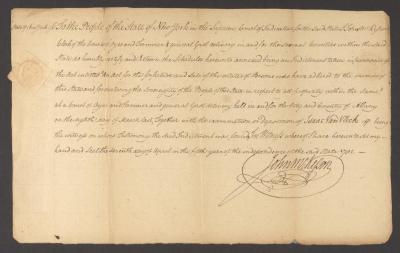 State of New York ss To the People of the State of New York in the Supreme Court of Judicature for the said State I John McKesson
Clerk of the Courts of Oyer and Terminer & general Goal delivery in and for the several Counties within the said
State do humbly certify and Return the Schedule hereunto annexed being an Indictment taken in pursuance of
the Act entitled "An Act for the forfeiture and Sale of the estates of Persons who have adhered to the enemies of
this State and for declaring the Sovereignty of the People of this State in respect to all property within the same"
at a Court of Oyer and Terminer and general Goal delivery held in and for the City and County of Albany
on the eighth day of March last, Together with the examination or Deposition of Isaac Van Vleck & being
the witness on whose Testimony the said Indictment was found. In Witness whereof I have hereunto set my
hand and Seal the seventh day of April in the fifth year of the independence of the said State 1781
John McKesson